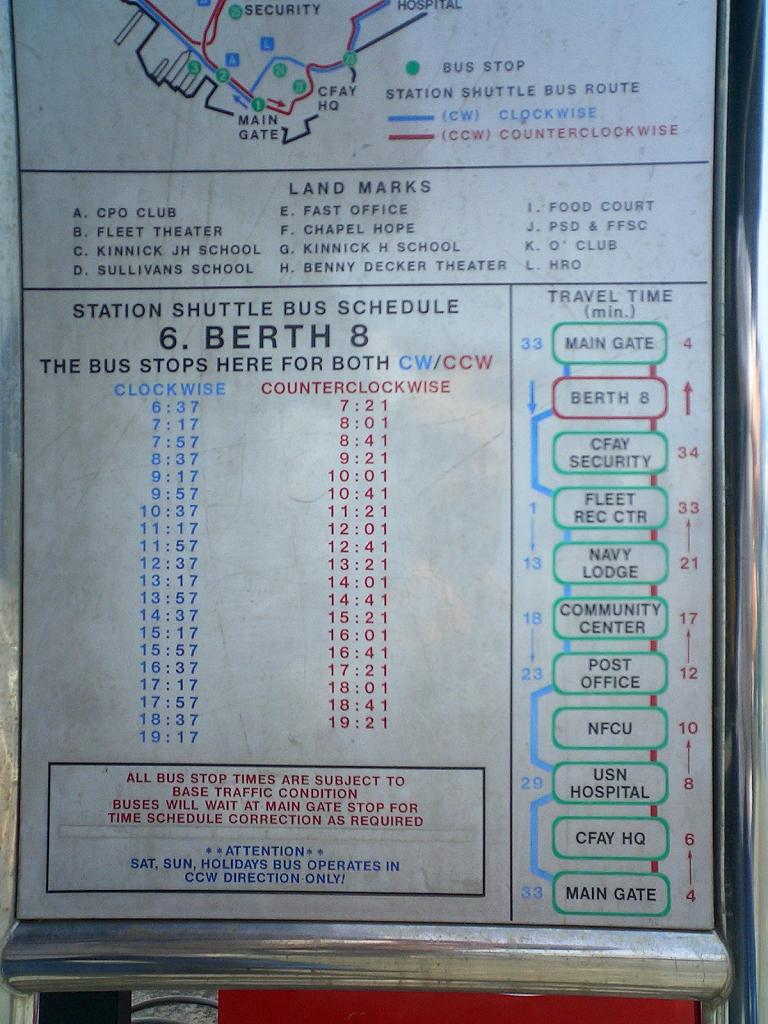 HOSPITAL
25
SECURITY
A
L
3
2
1
CFAY
HQ
MAIN
GATE
BUS STOP
STATION SHUTTLE BUS ROUTE
(CW) CLOCKWISE
(CCW) COUNTERCLOCKWISE
LAND MARKS
A. CPO CLUB
B. FLEET THEATER
C. KINNICK JH SCHOOL
D. SULLIVANS SCHOOL
E. FAST OFFICE
F. CHAPEL HOPE
G. KINNICK H SCHOOL
H. BENNY DECKER THEATER
I. FOOD COURT
J. PSD & FFSC
K. O' CLUB
L. HRO
STATION SHUTTLE BUS SCHEDULE
6. BERTH 8
THE BUS STOPS HERE FOR BOTH CW/CCW
CLOCKWISE
6:37
7:17
7:57
8:37
9:17
9:57
10:37
11:17
11:57
12:37
13:17
13:57
14:37
15:17
15:57
16:37
17:17
17:57
18:37
19:17
COUNTERCLOCKWISE
7:21
8:01
8:41
9:21
10:01
10:41
11:21
12:01
12:41
13:21
14:01
14:41
15:21
16:01
16:41
17:21
18:01
18:41
19:21
ALL BUS STOP TIMES ARE SUBJECT TO
BASE TRAFFIC CONDITION
BUSES WILL WAIT AT MAIN GATE STOP FOR
TIME SCHEDULE CORRECTION AS REQUIRED
**ATTENTION**
SAT, SUN, HOLIDAYS BUS OPERATES IN
CCW DIRECTION ONLY!
TRAVEL TIME
(min.)
33 MAIN GATE 4
BERTH 8
CFAY
SECURITY 34
1 FLEET
REC CTR 33
13 NAVY
LODGE 21
18 COMMUNITY
CENTER 17
23 POST
OFFICE 12
NFCU 10
29 USN
HOSPITAL 8
CFAY HQ 6
33 MAIN GATE 4